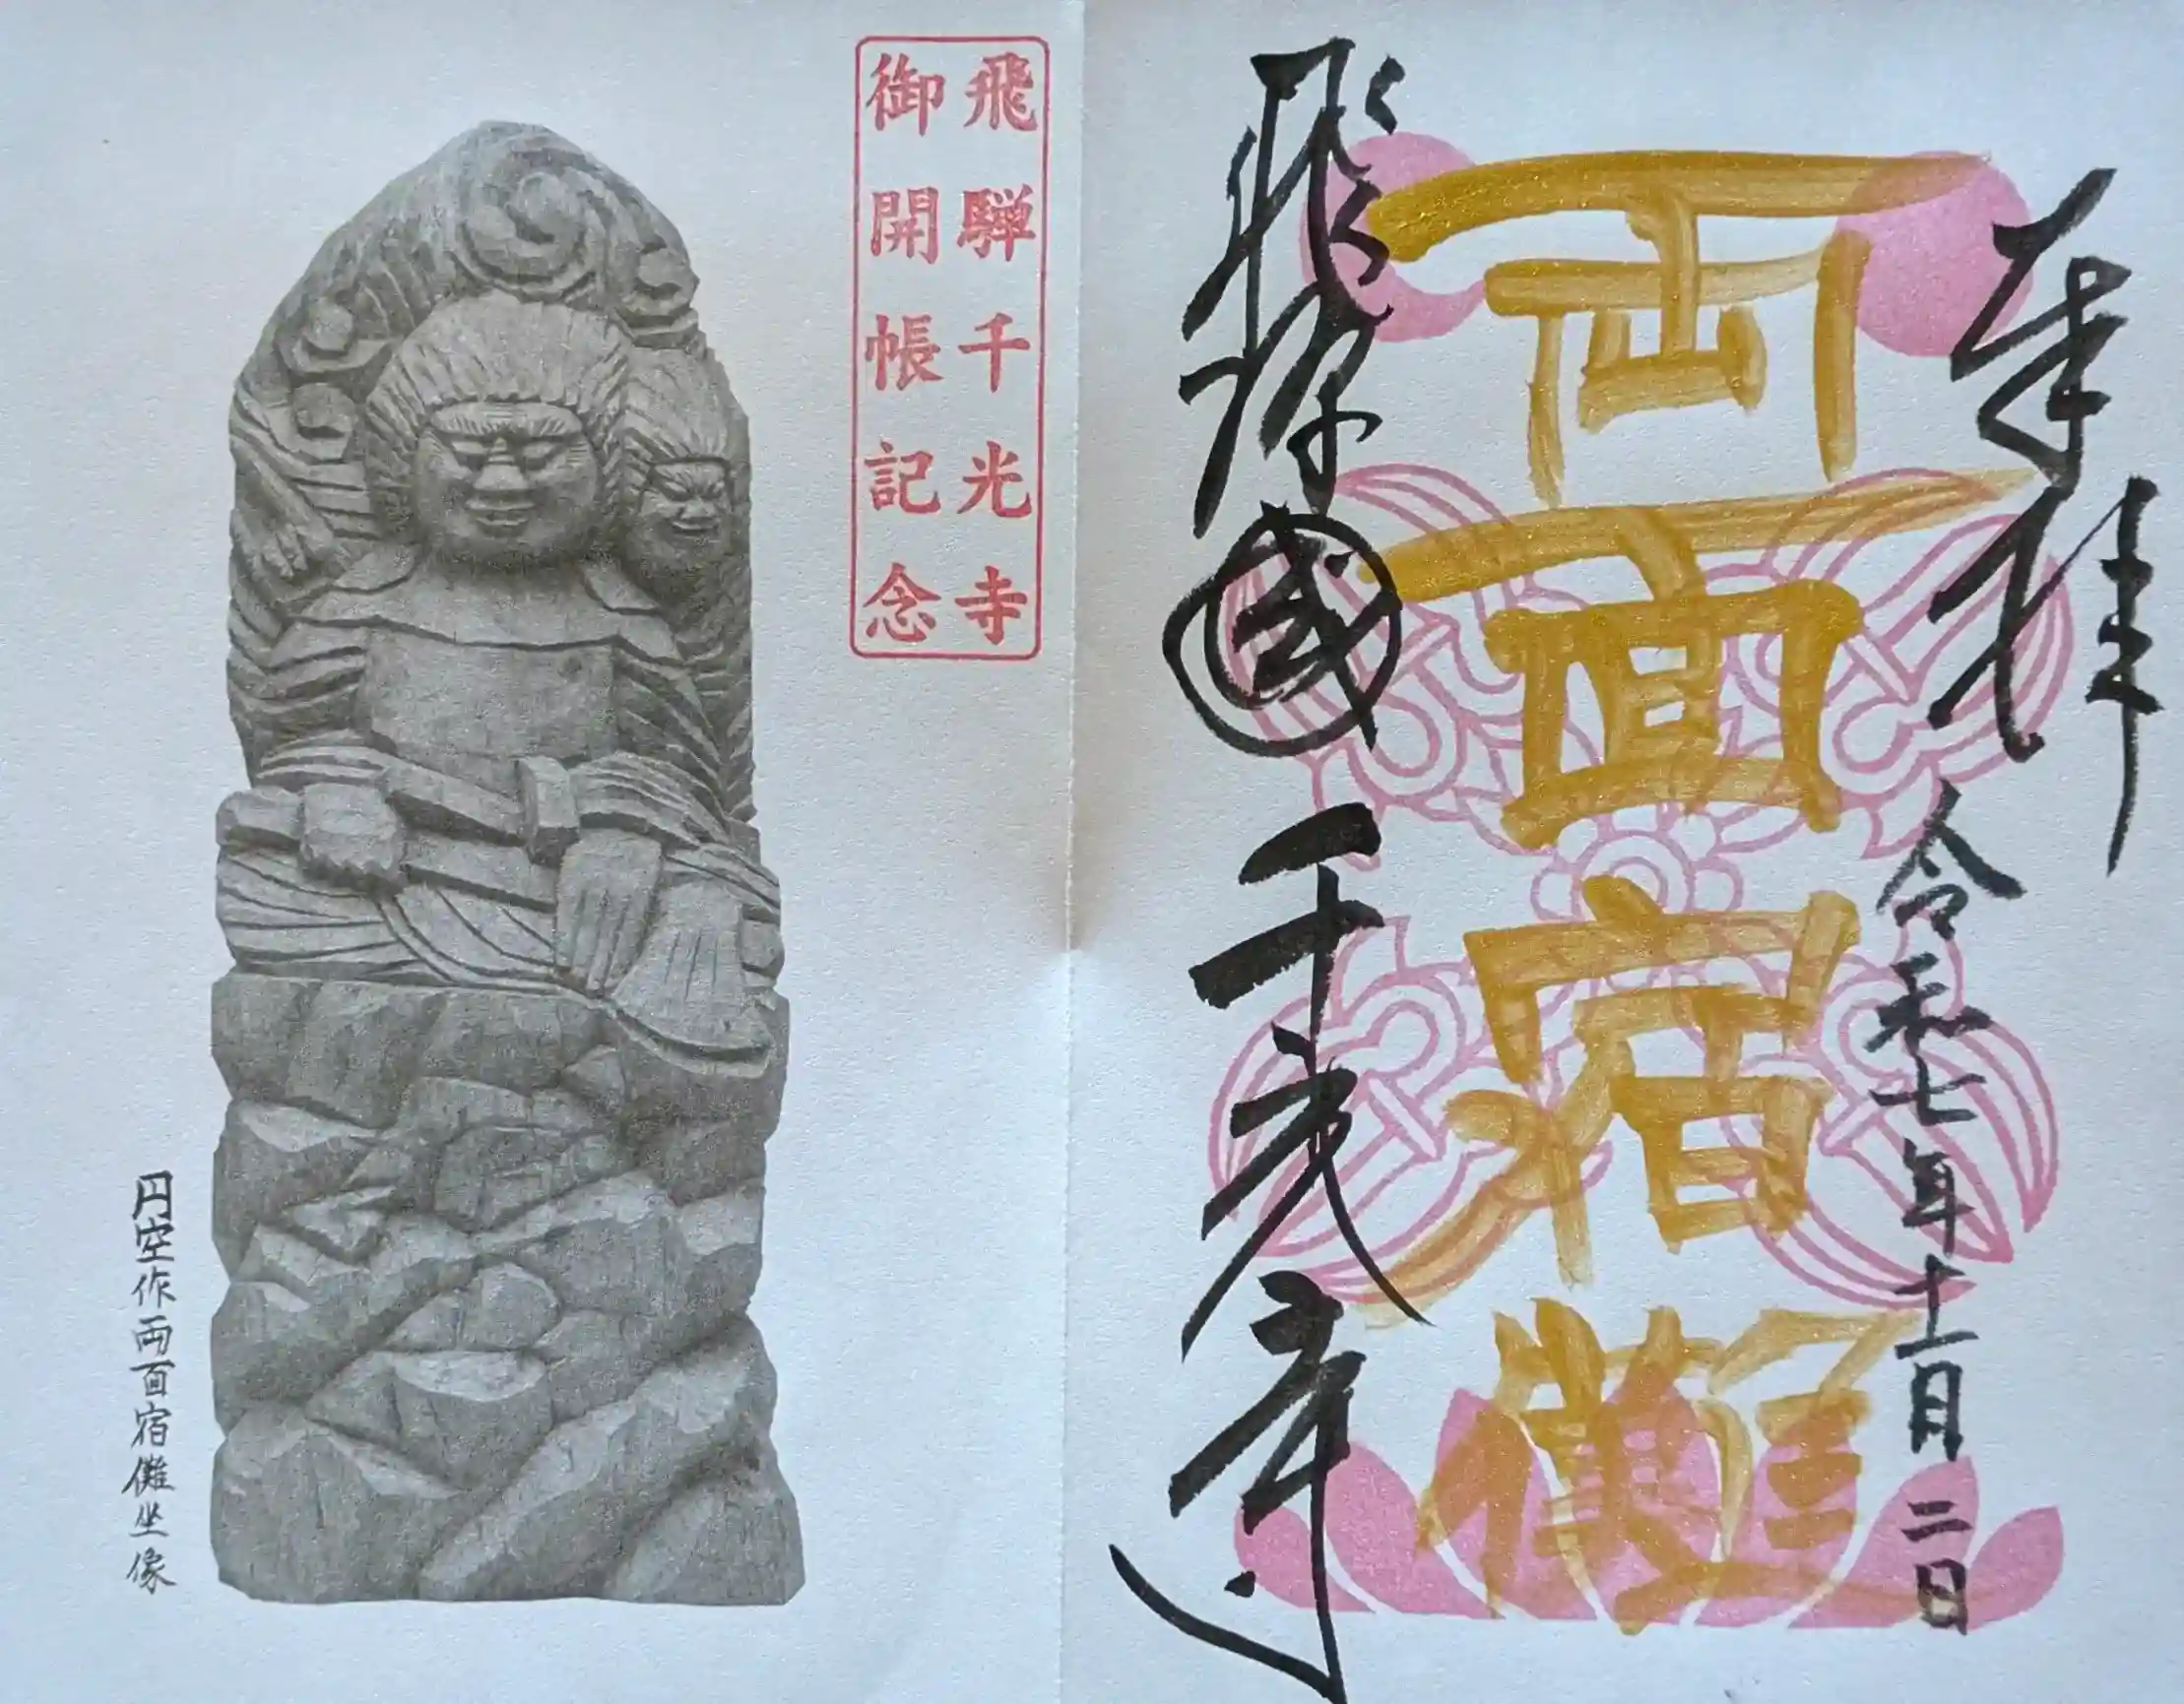 奉拝
令和七年十一月二日
両面宿儺
飛騨國千光寺
飛騨千光寺
御開帳記念
円空作両面宿儺坐像